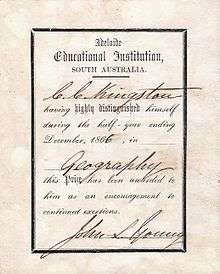 Adelaide
Educational Institution,
SOUTH AUSTRALIA.
C. C. Kingston
having highly distinguished himself
during the half-year ending
December, 1866, in
Geography
this Prize has been awarded to
him as an encouragement to
continued exertions.
John L. Young